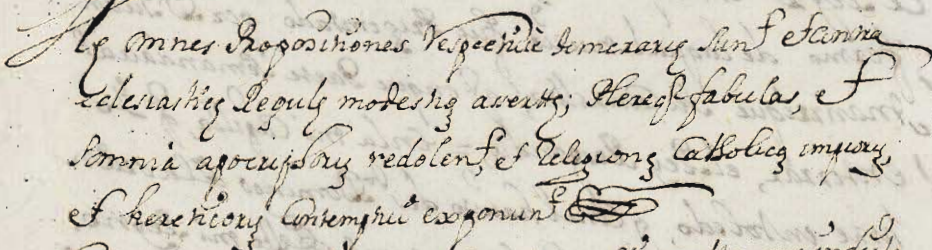 Hę omnes Propositiones respectiuè temerarię sunt et contra
eclesiasticę Regulę modestię auertę; Plereq3 fabulas, et
somnia apocriphorũ redolent, et Religionę Catholicę impiorũ,
et hereticorũ Contemptui exponunt